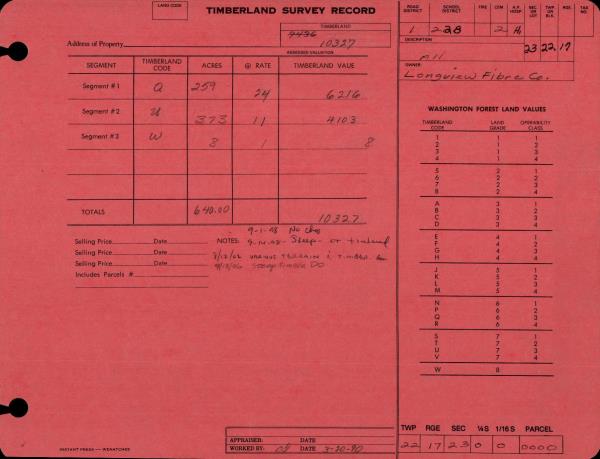 LAND CODE
TIMBERLAND SURVEY RECORD
TIMBERLAND
9436
Address of Property 10327
ASSESSED VALUATION
SEGMENT TIMBERLAND CODE ACRES @ RATE TIMBERLAND VAUE
Segment #1 Q 259 24 6216
Segment #2 U 373 11 4103
Segment #3 W 8 1 8
TOTALS 640.00 10327
9-1-98 No chg
Selling Price Date NOTES: 9-14-98 - Steep - or timberland
Selling Price Date 9/12/06 VARIOUS TERRAIN & TIMBER
Selling Price Date 9/13/06 Steep Timber DO
Includes Parcels #
APPRAISER: DATE
WORKED BY: DATE 3-20-90
INSTANT PRESS — WENATCHEE
ROAD DISTRICT SCHOOL DISTRICT FIRE CEM A.P. HOSP SEC OR LOT TWP OR BLK RGE TAX NO.
1 228 2 23 22 17
DESCRIPTION
All
OWNER
Longview Fibre Co.
WASHINGTON FOREST LAND VALUES
TIMBERLAND CODE LAND GRADE OPERABILITY CLASS
1 1 1
2 1 2
3 1 3
4 1 4
5 2 1
6 2 2
7 2 3
8 2 4
A 3 1
B 3 2
C 3 3
D 3 4
E 4 1
F 4 2
G 4 3
H 4 4
J 5 1
K 5 2
L 5 3
M 5 4
N 6 1
P 6 2
Q 6 3
R 6 4
S 7 1
T 7 2
U 7 3
V 7 4
W 8
TWP RGE SEC ¼S 1/16 S PARCEL
22 17 23 0 0 0000